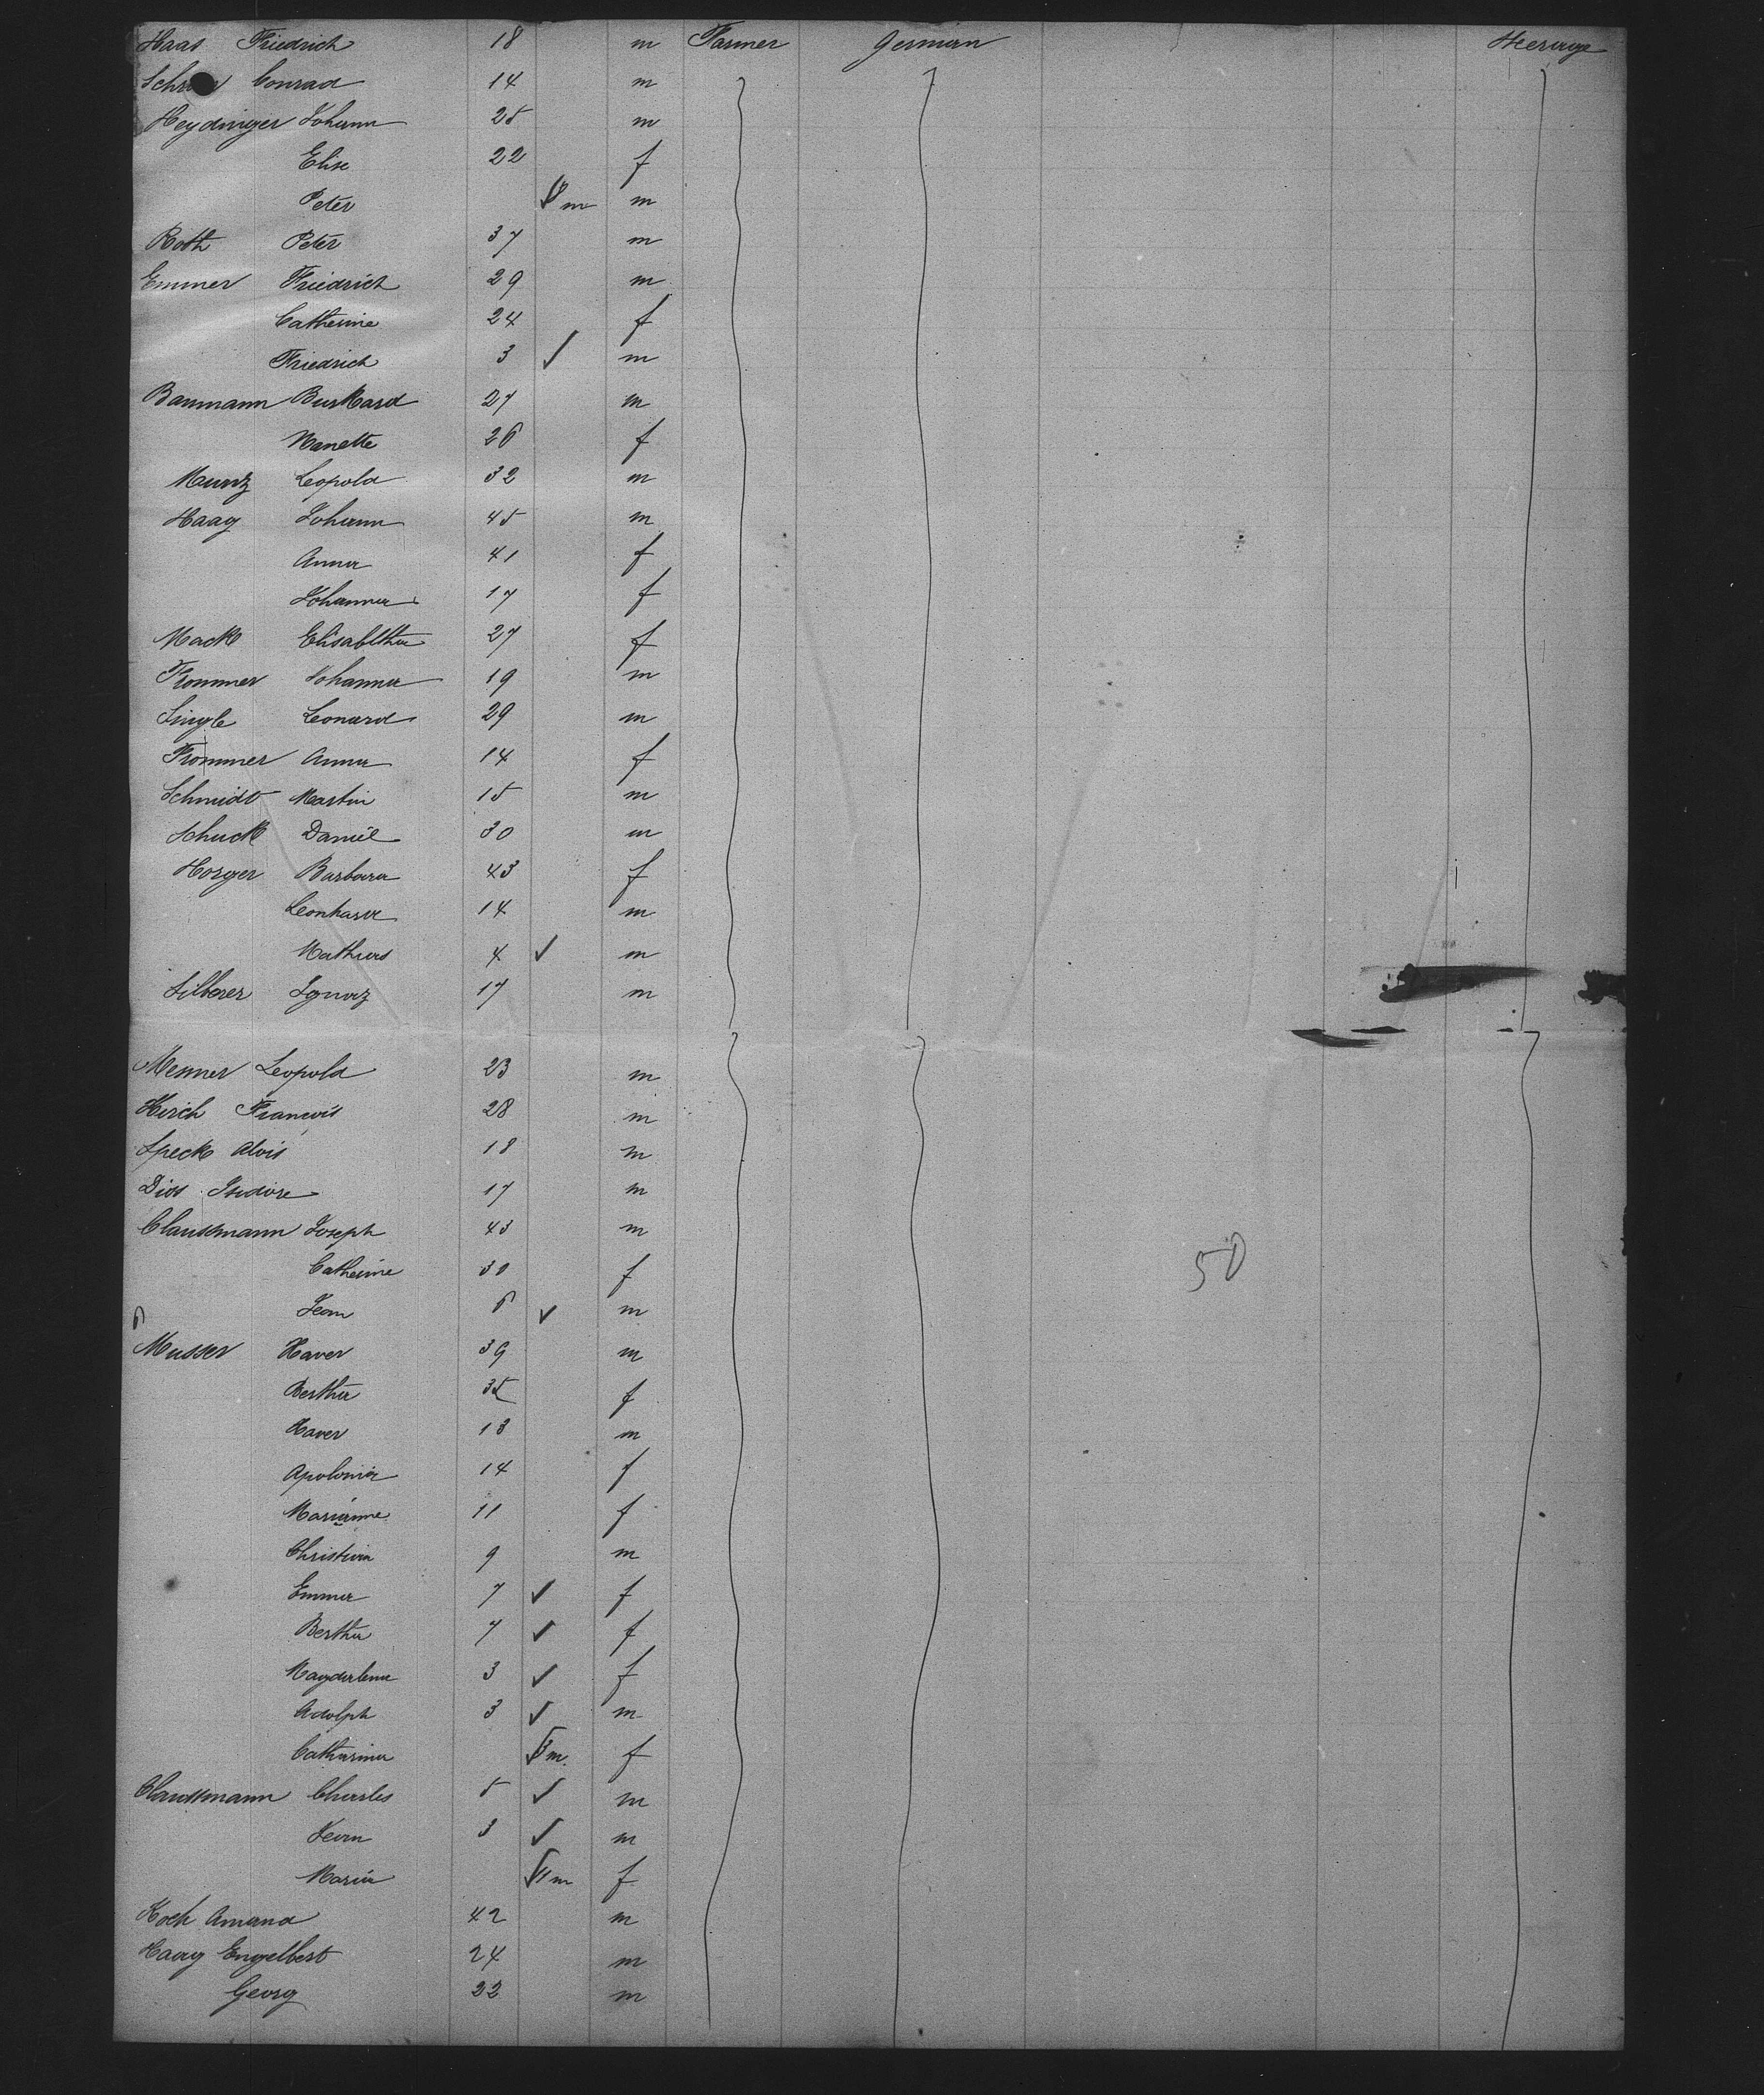 Haas Friedrich 18 m Farmer German Steerage
Conrad 14 m
Heydinger Johann 25 m
Elise 22 f
Peter 8 m m
Roth Peter 37 m
Emmer Friedrich 29 m
Catherine 24 f
Friedrich 3 ✓ m
Baumann Burkard 27 m
Nanette 26 f
Muntz Leopold 32 m
Haag Johann 45 m
Anna 41 f
Johanna 17 f
Mack Elisabetha 27 f
Frommer Johanna 19 m
Single Leonard 29 m
Frommer Anna 14 f
Schmidt Martin 15 m
Schuck Daniel 30 m
Horger Barbara 43 f
Leonhard 14 m
Mathias 4 ✓ m
Silberer Ignaz 17 m
Menner Leopold 23 m
Hirch Francois 28 m
Speck Alois 18 m
Isidore 17 m
Claussmann Joseph 43 m
Catherine 30 f
Jean 6 ✓ m
50
Musser Xaver 39 m
Bertha 35 f
Xaver 13 m
Apolonia 14 f
Marianne 11 f
Christian 9 m
Emma 7 ✓ f
Bertha 7 ✓ f
Magdalena 3 ✓ f
Adolph 3 ✓ m
Catharina 3 m. f
Claussmann Charles 5 ✓ m
Jean 3 ✓ m
Maria 11 m f
Koch Amand 42 m
Haag Engelbert 24 m
Georg 22 m